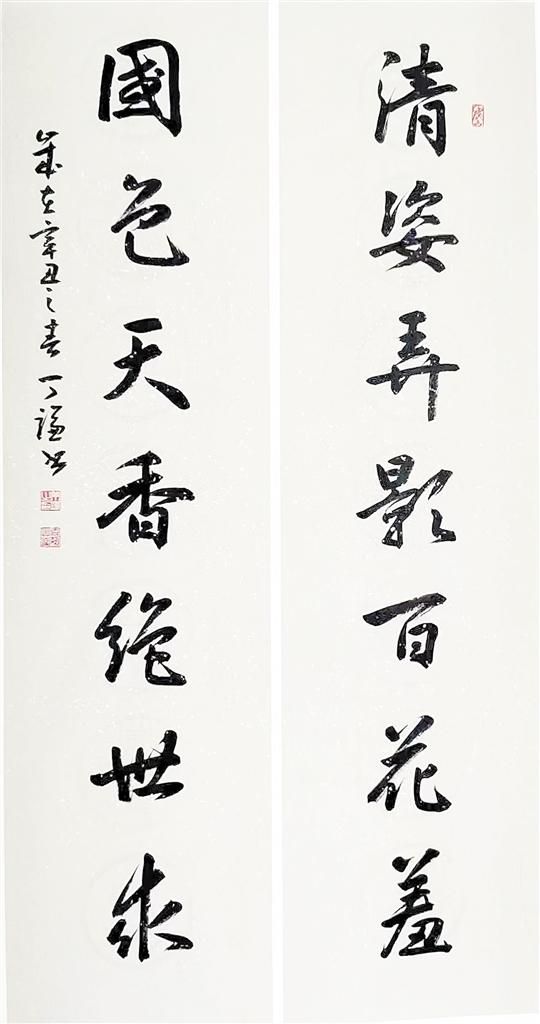 清姿弄影百花羞
國色天香絕世求
歲在辛丑之春丁謙书